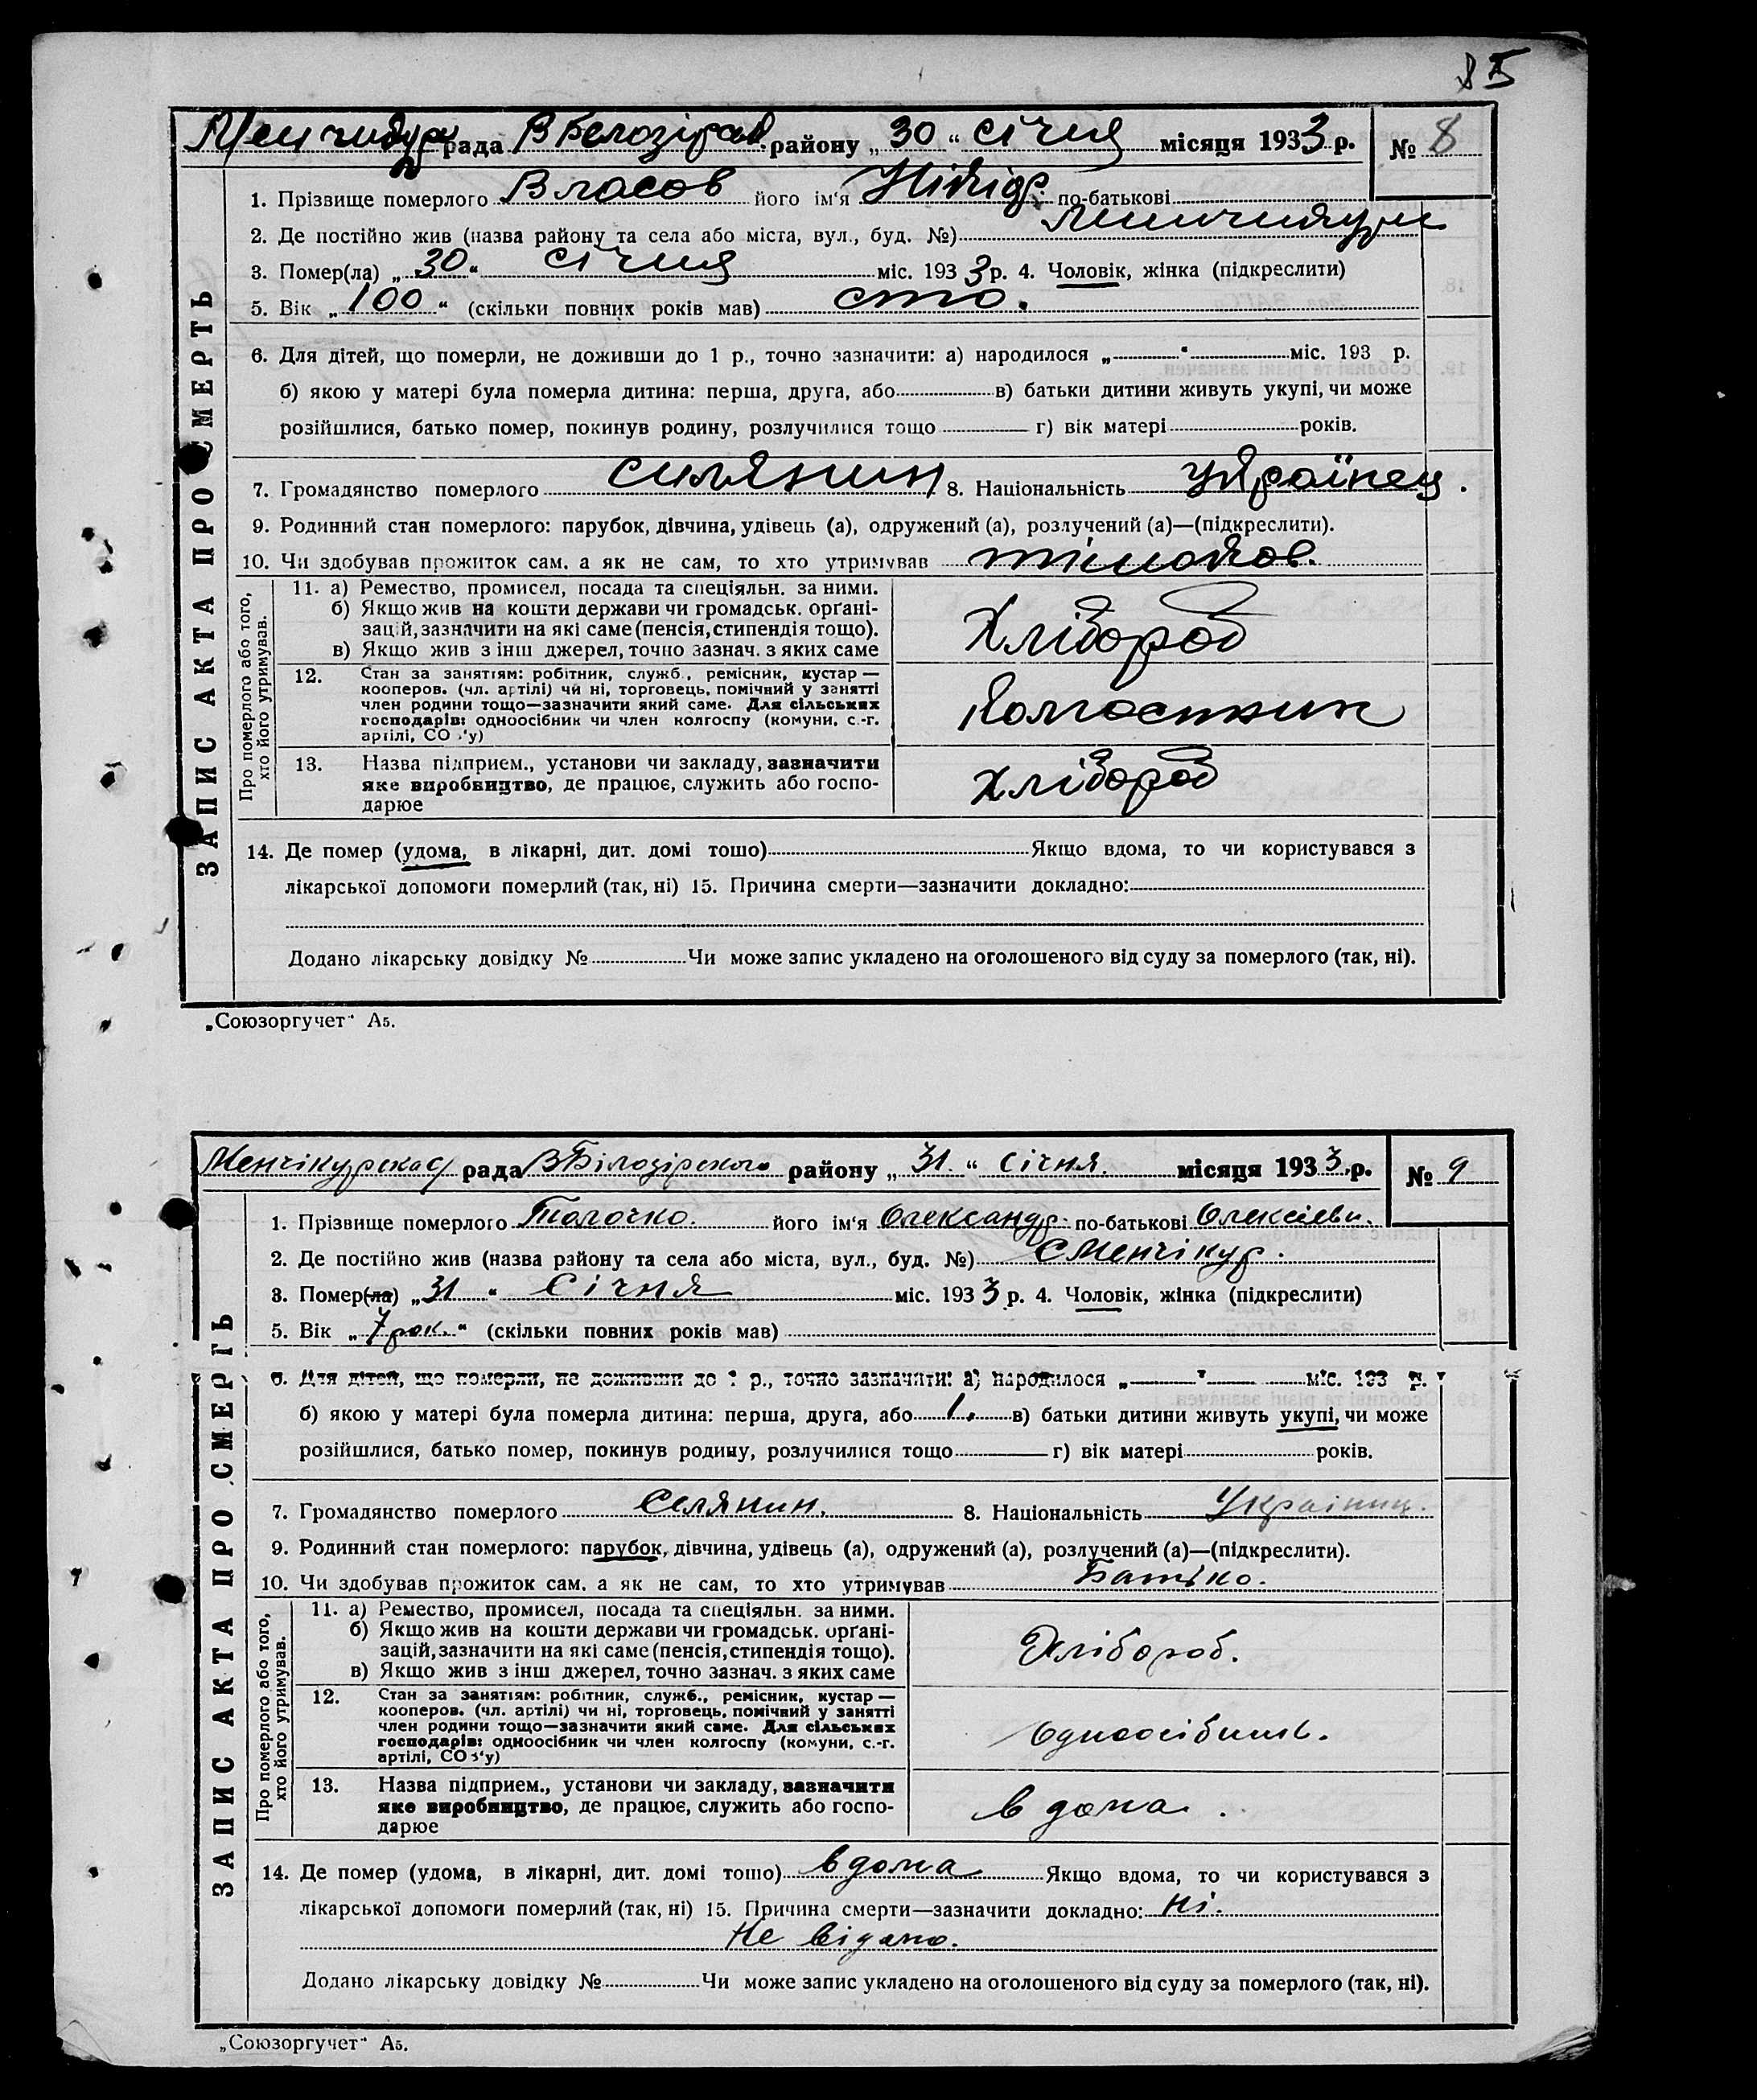 85
Менчикур рада ВБелозірськ. району „30“ січня місяця 1933 р. № 8
ЗАПИС АКТА ПРО СМЕРТЬ
1. Прізвище померлого Власов його ім'я по-батькові
2. Де постійно жив (назва району та села або міста, вул., буд. №)
3. Помер(ла) „30“ січня міс. 1933 р. 4. Чоловік, жінка (підкреслити)
5. Вік „100“ (скільки повних років мав) сто.
6. Для дітей, що померли, не доживши до 1 р., точно зазначити: а) народилося „ “ міс. 193 р.
б) якою у матері була померла дитина: перша, друга, або в) батьки дитини живуть укупі, чи може
розійшлися, батько помер, покинув родину, розлучилися тощо г) вік матері років.
7. Громадянство померлого силянин 8. Національність україنец.
9. Родинний стан померлого: парубок, дівчина, удівець (а), одружений (а), розлучений (а)—(підкреслити).
10. Чи здобував прожиток сам, а як не сам, то хто утримував
Про померлого або того, хто його утримував.
11. а) Ремество, промисел, посада та спеціяльн. за ними.
б) Якщо жив на кошти держави чи громадськ. орґані-
зацій, зазначити на які саме (пенсія, стипендія тощо).
в) Якщо жив з інш джерел, точно зазнач. з яких саме
Хлібороб
12. Стан за заняттям: робітник, служб., ремісник, кустар —
кооперов. (чл. артілі) чи ні, торговець, помічний у занятті
член родини тощо—зазначити який саме. Для сільських
господарів: одноосібник чи член колгоспу (комуни, с.-г.
артілі, СОЗ'у)
Колгоспник
13. Назва підприєм., установи чи закладу, зазначити
яке виробництво, де працює, служить або госпо-
дарює
Хлібороб
14. Де помер (удома, в лікарні, дит. домі тошо) Якщо вдома, то чи користувався з
лікарської допомоги померлий (так, ні) 15. Причина смерти—зазначити докладно:
Додано лікарську довідку № Чи може запис укладено на оголошеного від суду за померлого (так, ні).
„Союзоргучет“ А5.
Менчікурская рада ВБілозірского району „31.“ Січня. місяця 1933 р. № 9
ЗАПИС АКТА ПРО СМЕРТЬ
1. Прізвище померлого Толочко. його ім'я Олександр. по-батькові Олексієви.
2. Де постійно жив (назва району та села або міста, вул., буд. №) С Менчікур.
3. Помер(ла) „31“ Січня міс. 1933 р. 4. Чоловік, жінка (підкреслити)
5. Вік „7 рок.“ (скільки повних років мав)
6. Для дітей, що померли, не доживши до 1 р., точно зазначити: а) народилося „ “ міс. 193 р.
б) якою у матері була померла дитина: перша, друга, або 1. в) батьки дитини живуть укупі, чи може
розійшлися, батько помер, покинув родину, розлучилися тощо г) вік матері років.
7. Громадянство померлого Селянин. 8. Національність Українец.
9. Родинний стан померлого: парубок, дівчина, удівець (а), одружений (а), розлучений (а)—(підкреслити).
10. Чи здобував прожиток сам, а як не сам, то хто утримував Батько.
Про померлого або того, хто його утримував.
11. а) Ремество, промисел, посада та спеціяльн. за ними.
б) Якщо жив на кошти держави чи громадськ. орґані-
зацій, зазначити на які саме (пенсія, стипендія тощо).
в) Якщо жив з інш джерел, точно зазнач. з яких саме
Хлібороб.
12. Стан за заняттям: робітник, служб., ремісник, кустар —
кооперов. (чл. артілі) чи ні, торговець, помічний у занятті
член родини тощо—зазначити який саме. Для сільських
господарів: одноосібник чи член колгоспу (комуни, с.-г.
артілі, СОЗ'у)
Одноосібник.
13. Назва підприєм., установи чи закладу, зазначити
яке виробництво, де працює, служить або госпо-
дарює
вдома.
14. Де помер (удома, в лікарні, дит. домі тошо) вдома Якщо вдома, то чи користувався з
лікарської допомоги померлий (так, ні) 15. Причина смерти—зазначити докладно: ні.
Не відано.
Додано лікарську довідку № Чи може запис укладено на оголошеного від суду за померлого (так, ні).
„Союзоргучет“ А5.